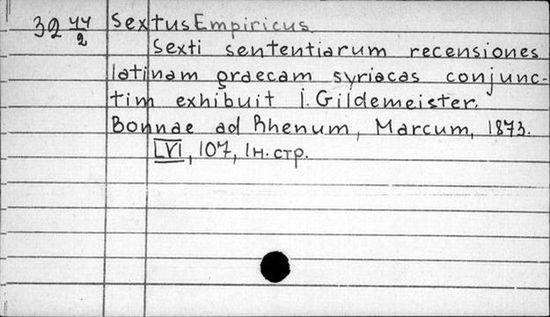 32 44/2 Sextus Empiricus.
Sexti sententiarum recensiones
latinam graecam syriacas conjunc-
tim exhibuit J. Gildemeister.
Bonnae ad Rhenum, Marcum, 1873.
LVI, 107, 1 н. стр.